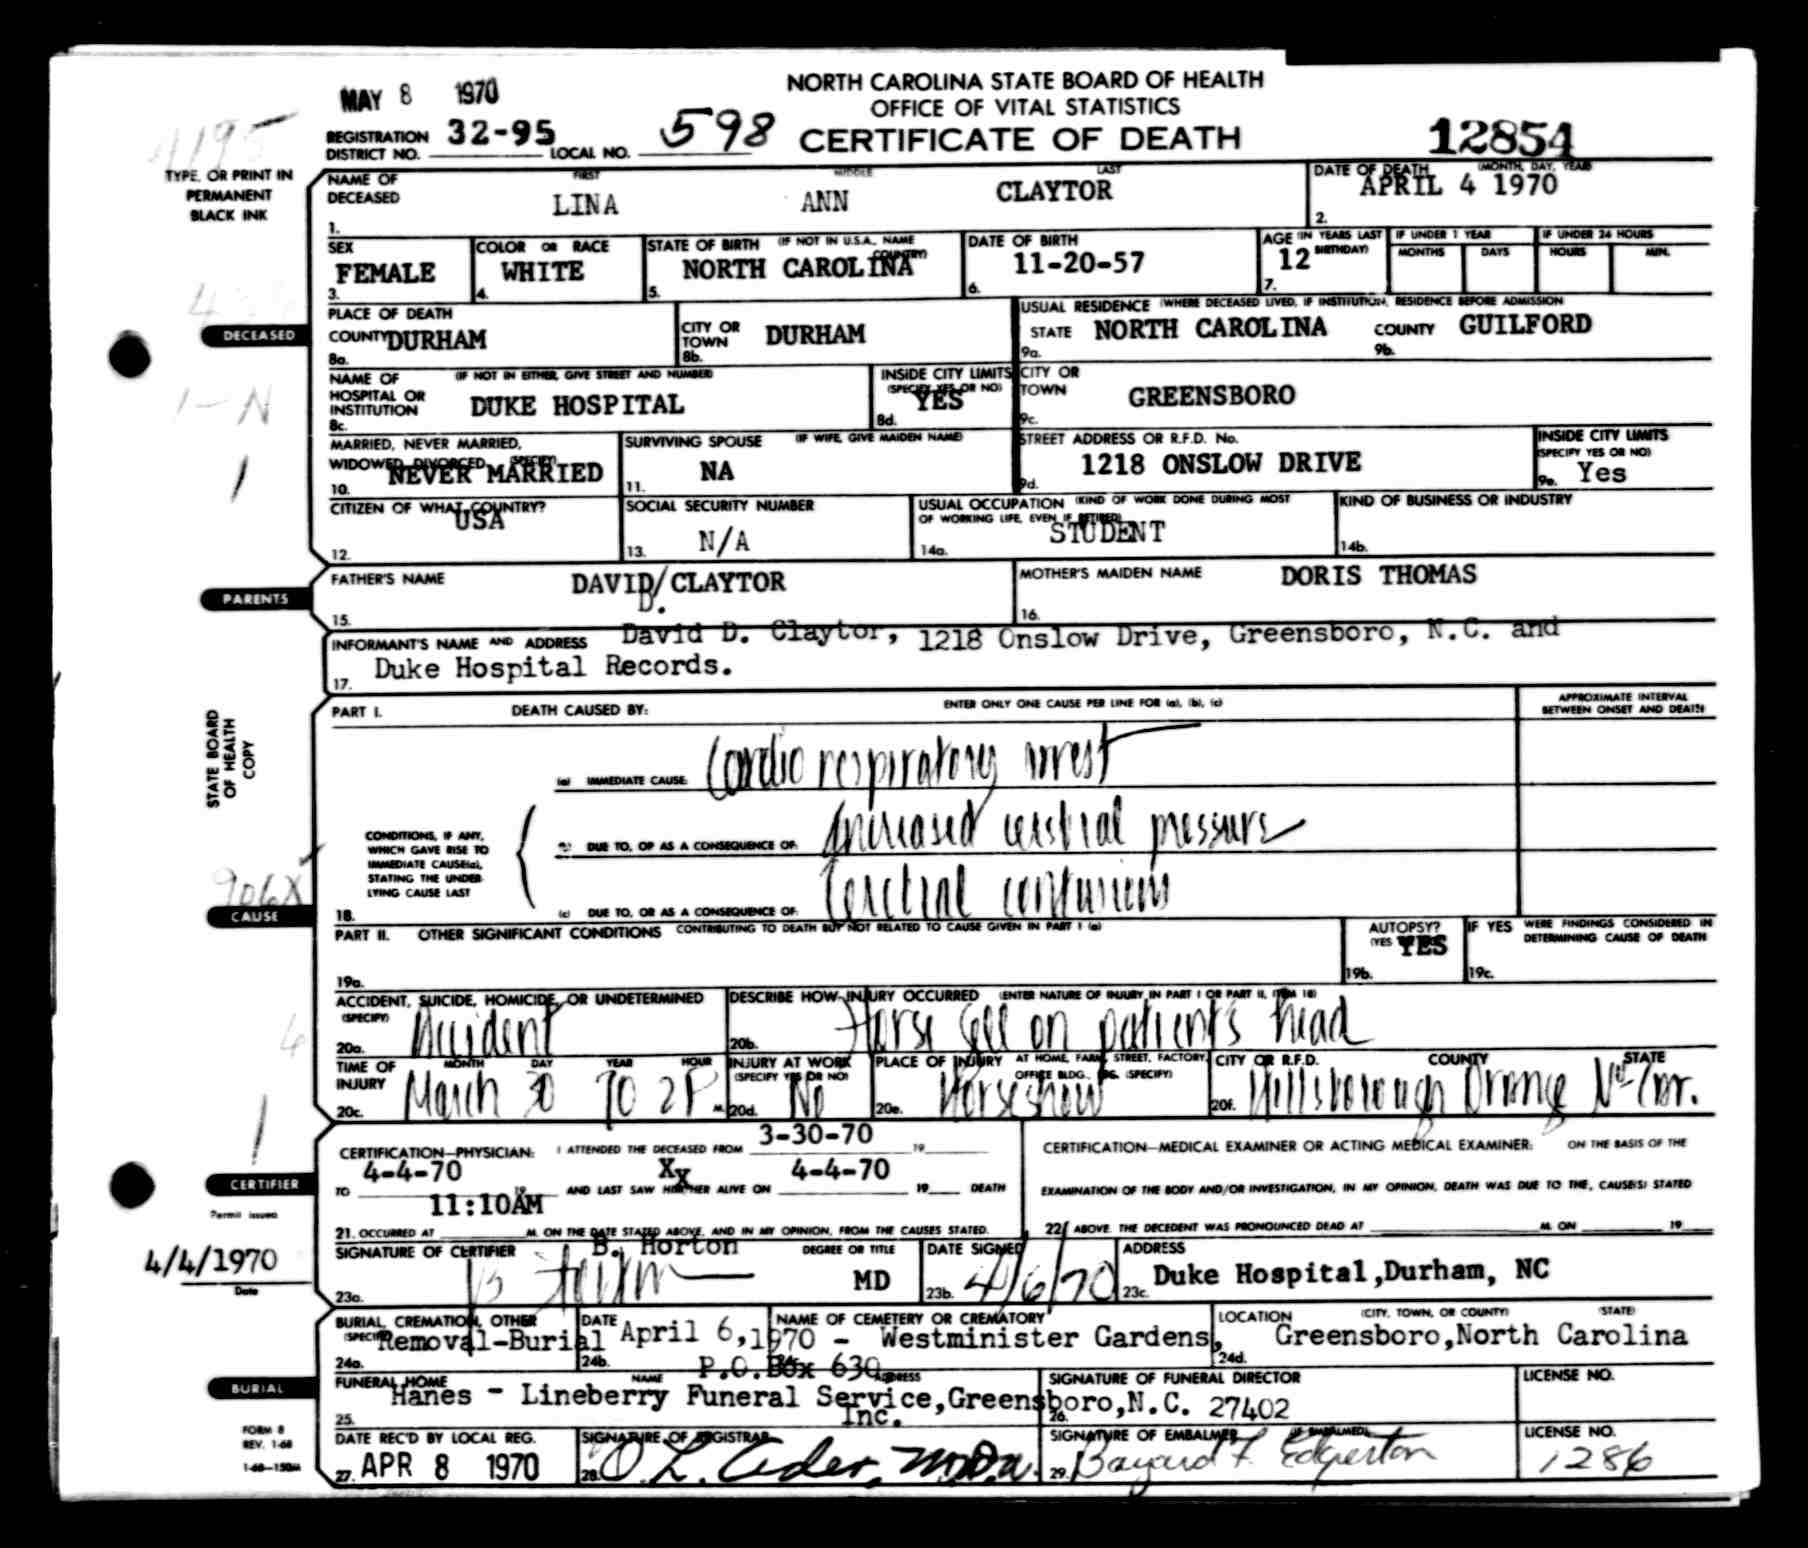 MAY 8 1970
NORTH CAROLINA STATE BOARD OF HEALTH
OFFICE OF VITAL STATISTICS
CERTIFICATE OF DEATH
REGISTRATION DISTRICT NO. 32-95 LOCAL NO. 598
12854
4195
TYPE, OR PRINT IN
PERMANENT
BLACK INK
NAME OF DECEASED FIRST MIDDLE LAST
1. LINA ANN CLAYTOR
DATE OF DEATH (MONTH, DAY, YEAR)
2. APRIL 4 1970
SEX
3. FEMALE
COLOR OR RACE
4. WHITE
STATE OF BIRTH (IF NOT IN U.S.A., NAME COUNTRY)
5. NORTH CAROLINA
DATE OF BIRTH
6. 11-20-57
AGE (IN YEARS LAST BIRTHDAY)
7. 12
IF UNDER 1 YEAR
MONTHS DAYS
IF UNDER 24 HOURS
HOURS MIN.
DECEASED
PLACE OF DEATH
COUNTY DURHAM
8a.
CITY OR TOWN DURHAM
8b.
USUAL RESIDENCE (WHERE DECEASED LIVED, IF INSTITUTION, RESIDENCE BEFORE ADMISSION
STATE NORTH CAROLINA COUNTY GUILFORD
9a. 9b.
1-N
NAME OF HOSPITAL OR INSTITUTION (IF NOT IN EITHER, GIVE STREET AND NUMBER)
8c. DUKE HOSPITAL
INSIDE CITY LIMITS (SPECIFY YES OR NO)
8d. YES
CITY OR TOWN
9c. GREENSBORO
1
MARRIED, NEVER MARRIED, WIDOWED, DIVORCED (SPECIFY)
10. NEVER MARRIED
SURVIVING SPOUSE (IF WIFE, GIVE MAIDEN NAME)
11. NA
STREET ADDRESS OR R.F.D. No.
9d. 1218 ONSLOW DRIVE
INSIDE CITY LIMITS (SPECIFY YES OR NO)
9e. Yes
CITIZEN OF WHAT COUNTRY?
12. USA
SOCIAL SECURITY NUMBER
13. N/A
USUAL OCCUPATION (KIND OF WORK DONE DURING MOST OF WORKING LIFE, EVEN IF RETIRED)
14a. STUDENT
KIND OF BUSINESS OR INDUSTRY
14b.
PARENTS
FATHER'S NAME
15. DAVID/CLAYTOR
D.
MOTHER'S MAIDEN NAME
16. DORIS THOMAS
INFORMANT'S NAME AND ADDRESS David D. Claytor, 1218 Onslow Drive, Greensboro, N.C. and
17. Duke Hospital Records.
STATE BOARD
OF HEALTH
COPY
PART I. DEATH CAUSED BY: ENTER ONLY ONE CAUSE PER LINE FOR (a), (b), (c)
APPROXIMATE INTERVAL
BETWEEN ONSET AND DEATH
(a) IMMEDIATE CAUSE: Cardio respiratory arrest
CONDITIONS, IF ANY,
WHICH GAVE RISE TO
IMMEDIATE CAUSE(a),
STATING THE UNDER-
LYING CAUSE LAST
(b) DUE TO, OR AS A CONSEQUENCE OF: Increased cerebral pressure
906X
CAUSE
18. (c) DUE TO, OR AS A CONSEQUENCE OF: Cerebral contusions
PART II. OTHER SIGNIFICANT CONDITIONS CONTRIBUTING TO DEATH BUT NOT RELATED TO CAUSE GIVEN IN PART I (a)
19a.
AUTOPSY?
(YES YES
19b.
IF YES WERE FINDINGS CONSIDERED IN
DETERMINING CAUSE OF DEATH
19c.
ACCIDENT, SUICIDE, HOMICIDE, OR UNDETERMINED
(SPECIFY)
20a. Accident
DESCRIBE HOW INJURY OCCURRED (ENTER NATURE OF INJURY IN PART I OR PART II, ITEM 18)
20b. Horse fell on patient's head
TIME OF INJURY MONTH DAY YEAR HOUR
20c. March 30 70 2P M.
INJURY AT WORK (SPECIFY YES OR NO)
20d. No
PLACE OF INJURY AT HOME, FARM, STREET, FACTORY, OFFICE BLDG., ETC. (SPECIFY)
20e. Horseshow
CITY OR R.F.D. COUNTY STATE
20f. Hillsborough Orange No Car.
CERTIFIER
CERTIFICATION—PHYSICIAN: I ATTENDED THE DECEASED FROM 3-30-70 19
TO 4-4-70 19 AND LAST SAW HIM/HER ALIVE ON 4-4-70 19 DEATH
21. OCCURRED AT 11:10AM M. ON THE DATE STATED ABOVE, AND IN MY OPINION, FROM THE CAUSES STATED.
CERTIFICATION—MEDICAL EXAMINER OR ACTING MEDICAL EXAMINER: ON THE BASIS OF THE
EXAMINATION OF THE BODY AND/OR INVESTIGATION, IN MY OPINION, DEATH WAS DUE TO THE, CAUSE(S) STATED
22. ABOVE. THE DECEDENT WAS PRONOUNCED DEAD AT M. ON 19
Permit issued
4/4/1970
Date
SIGNATURE OF CERTIFIER B. Horton DEGREE OR TITLE
23a. B Horton MD
DATE SIGNED
23b. 4/6/70
ADDRESS
23c. Duke Hospital,Durham, NC
BURIAL, CREMATION, OTHER
(SPECIFY) Removal-Burial
24a.
DATE April 6,1970 -
24b.
NAME OF CEMETERY OR CREMATORY
Westminister Gardens,
LOCATION (CITY, TOWN, OR COUNTY) (STATE)
24d. Greensboro,North Carolina
BURIAL
P.O.Box 630
FUNERAL HOME NAME ADDRESS
25. Hanes - Lineberry Funeral Service,Greensboro,N.C. 27402
Inc.
SIGNATURE OF FUNERAL DIRECTOR
26.
LICENSE NO.
FORM 8
REV. 1-68
1-68—150M
DATE REC'D BY LOCAL REG.
27. APR 8 1970
SIGNATURE OF REGISTRAR
28.
SIGNATURE OF EMBALMER (IF EMBALMED)
29. Bayard F. Edgerton
LICENSE NO.
1286